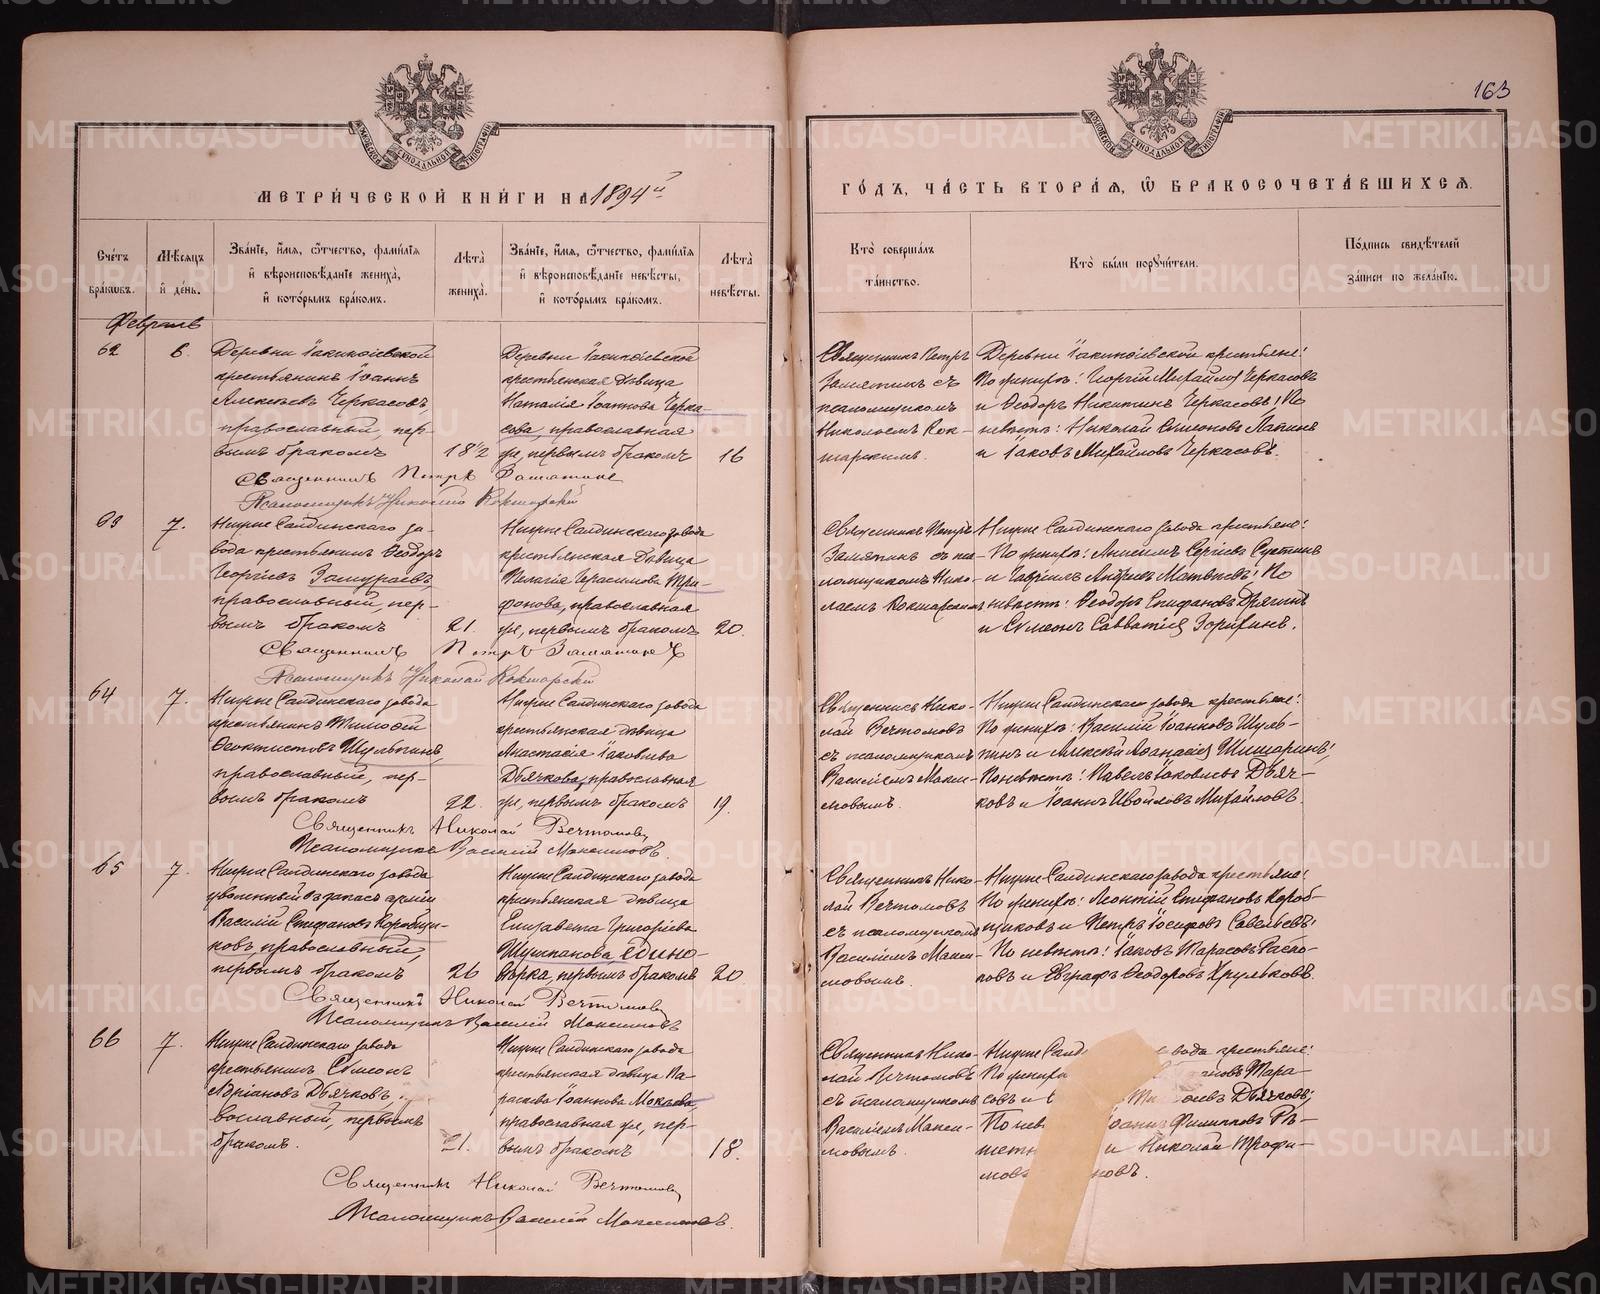 163
МЕТРИ́ЧЕСКОЙ КНИ́ГИ НА 1894й
ГО́ДЪ, ЧА́СТЬ ВТОРА́Я, Ѡ БРАКОСОЧЕТА́ВШИХСЯ.
Сче́тъ бра́кѡвъ.
Мѣ́сяцъ и҆ де́нь.
Зва́нїе, и҆́мя, ѻ҆́тчество, фами́лїя
и҆ вѣроисповѣ́данїе жениха̀,
и҆ кото́рымъ бра́комъ.
Лѣ́та жениха̀.
Зва́нїе, и҆́мя, ѻ҆́тчество, фами́лїя
и҆ вѣроисповѣ́данїе невѣ́сты,
и҆ кото́рымъ бра́комъ.
Лѣ́та невѣ́сты.
Кто̀ соверша́лъ
та́инство.
Кто̀ бы́ли порꙋчи́тели.
По́дпись свидѣ́телей
за́писи по жела́нїю.
Февраль
62
6.
Деревни Іакинѳіевской
крестьянинъ Іоаннъ
Алексѣевъ Черкасовъ,
православный, пер-
вымъ бракомъ
18½
Деревни Іакинѳіевской
крестьянская дѣвица
Наталія Іоаннова Черка-
сова, православная
же, первымъ бракомъ
16
Священникъ Петръ
Замятинъ съ
псаломщикомъ
Николаемъ Кок-
шарскимъ.
Деревни Іакинѳіевской крестьяне:
По женихѣ: Георгій Михайловъ Черкасовъ
и Ѳеодоръ Никитинъ Черкасовъ; По
невѣстѣ: Николай Симеоновъ Лапинъ
и Іаковъ Михайловъ Черкасовъ.
Священникъ Петръ Замятинъ
Псаломщикъ Николай Кокшарскій
63
7.
Нижне Салдинскаго за-
вода крестьянинъ Ѳеодоръ
Георгіевъ Замураевъ,
православный, пер-
вымъ бракомъ
21.
Нижне Салдинскаго завода
крестьянская дѣвица
Пелагія Герасимова Три-
фонова, православная
же, первымъ бракомъ
20.
Священникъ Петръ
Замятинъ съ пса-
ломщикомъ Нико-
лаемъ Кокшарскимъ
Нижне Салдинскаго завода крестьяне:
По женихѣ: Анисимъ Сергіевъ
и Гавріилъ Андреевъ Матвѣевъ; По
невѣстѣ: Ѳеодоръ Епифановъ Дрягинъ
и Симеонъ Савватіевъ Зорихинъ.
Священникъ Петръ Замятинъ
Псаломщикъ Николай Кокшарскій
64
7.
Нижне Салдинскаго завода
крестьянинъ Тимоѳей
Ѳеоктистовъ Шульгинъ,
православный, пер-
вымъ бракомъ
22.
Нижне Салдинскаго завода
крестьянская дѣвица
Анастасія Іаковлева
Дьячкова, православная
же, первымъ бракомъ
19.
Священникъ Нико-
лай Вечтомовъ
съ псаломщикомъ
Василіемъ Макси-
мовымъ.
Нижне Салдинскаго завода крестьяне:
По женихѣ: Василій Іоанновъ Шуль-
гинъ и Алексѣй Аѳанасіевъ Шишаринъ;
По невѣстѣ: Павелъ Іаковлевъ Дьяч-
ковъ и Іоаннъ Ивойловъ Михайловъ.
Священникъ Николай Вечтомовъ
Псаломщикъ Василій Максимовъ.
65
7.
Нижне Салдинскаго завода
уволенный въ запасъ арміи
Василій Стефановъ Коробщи-
ковъ, православный,
первымъ бракомъ
26
Нижне Салдинскаго завода
крестьянская дѣвица
Елизавета Григоріева
Шушпанова, едино-
вѣрка, первымъ бракомъ
20.
Священникъ Нико-
лай Вечтомовъ
съ псаломщикомъ
Василіемъ Макси-
мовымъ.
Нижне Салдинскаго завода крестьяне:
По женихѣ: Леонтій Стефановъ Короб-
щиковъ и Петръ Іосифовъ Савельевъ;
По невѣстѣ: Іаковъ Тарасовъ Распо-
повъ и Евграфъ Ѳеодоровъ Хрульковъ.
Священникъ Николай Вечтомовъ
Псаломщикъ Василій Максимовъ
66
7.
Нижне Салдинскаго завода
крестьянинъ Симеонъ
Адріановъ Дьячковъ,
вославный, первымъ
бракомъ.
21.
Нижне Салдинскаго завода
крестьянская дѣвица Па-
раскева Іоаннова Мокѣева,
православная же, пер-
вымъ бракомъ
18.
Священникъ Нико-
лай Вечтомовъ
съ псаломщикомъ
Василіемъ Макси-
мовымъ.
Нижне Салд вода крестьяне:
По женихѣ ановъ Тара-
совъ и Дьячковъ;
По нев Іоаннъ Филипповъ Рѣ-
и Николай Трофи-
мовъ новъ.
Священникъ Николай Вечтомовъ
Псаломщикъ Василій Максимовъ.
METRIKI.GASO-URAL.RU